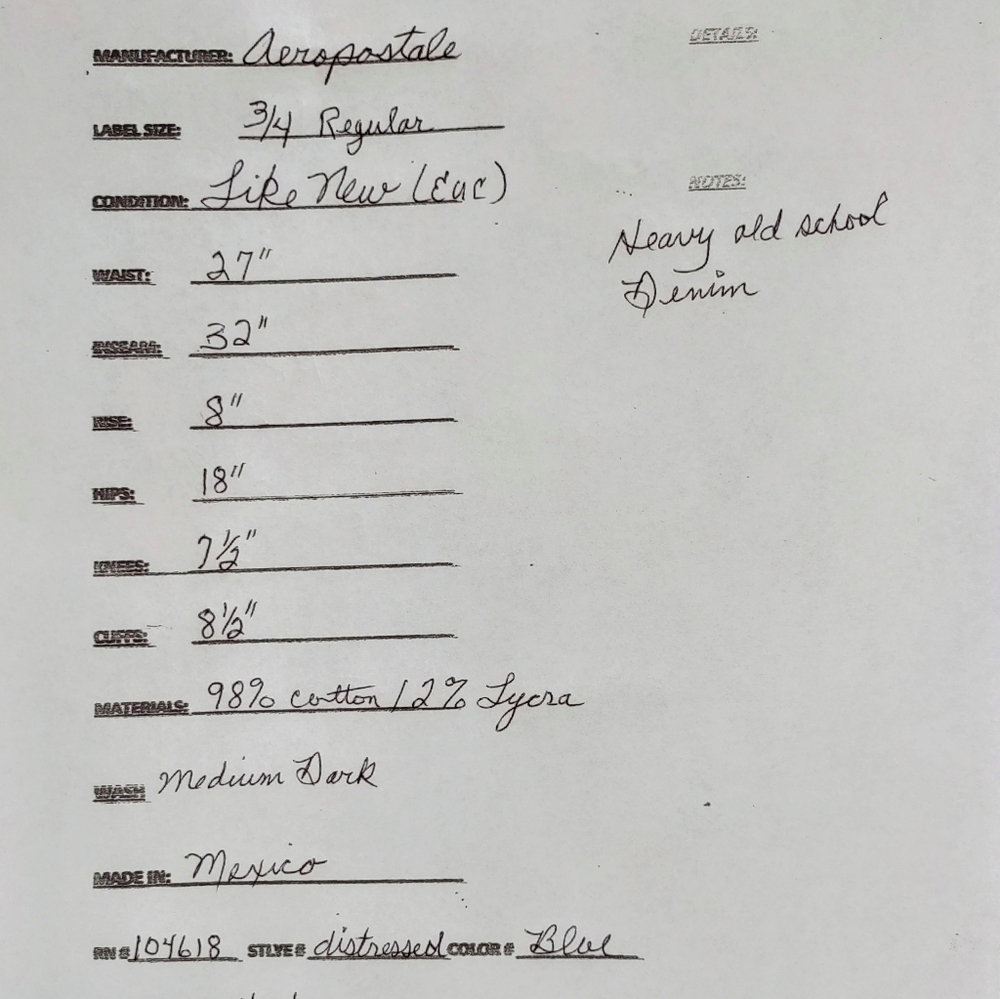 MANUFACTURER: Aeropostale
DETAILS:
LABEL SIZE: 3/4 Regular
CONDITION: Like New (Euc)
NOTES:
Heavy old school
Denim
WAIST: 27"
INSEAM: 32"
RISE: 8"
HIPS: 18"
KNEES: 7 1/2"
CUFFS: 8 1/2"
MATERIALS: 98% cotton / 2% Lycra
WASH: Medium Dark
MADE IN: Mexico
RN # 104618 STLYE # distressed COLOR # Blue